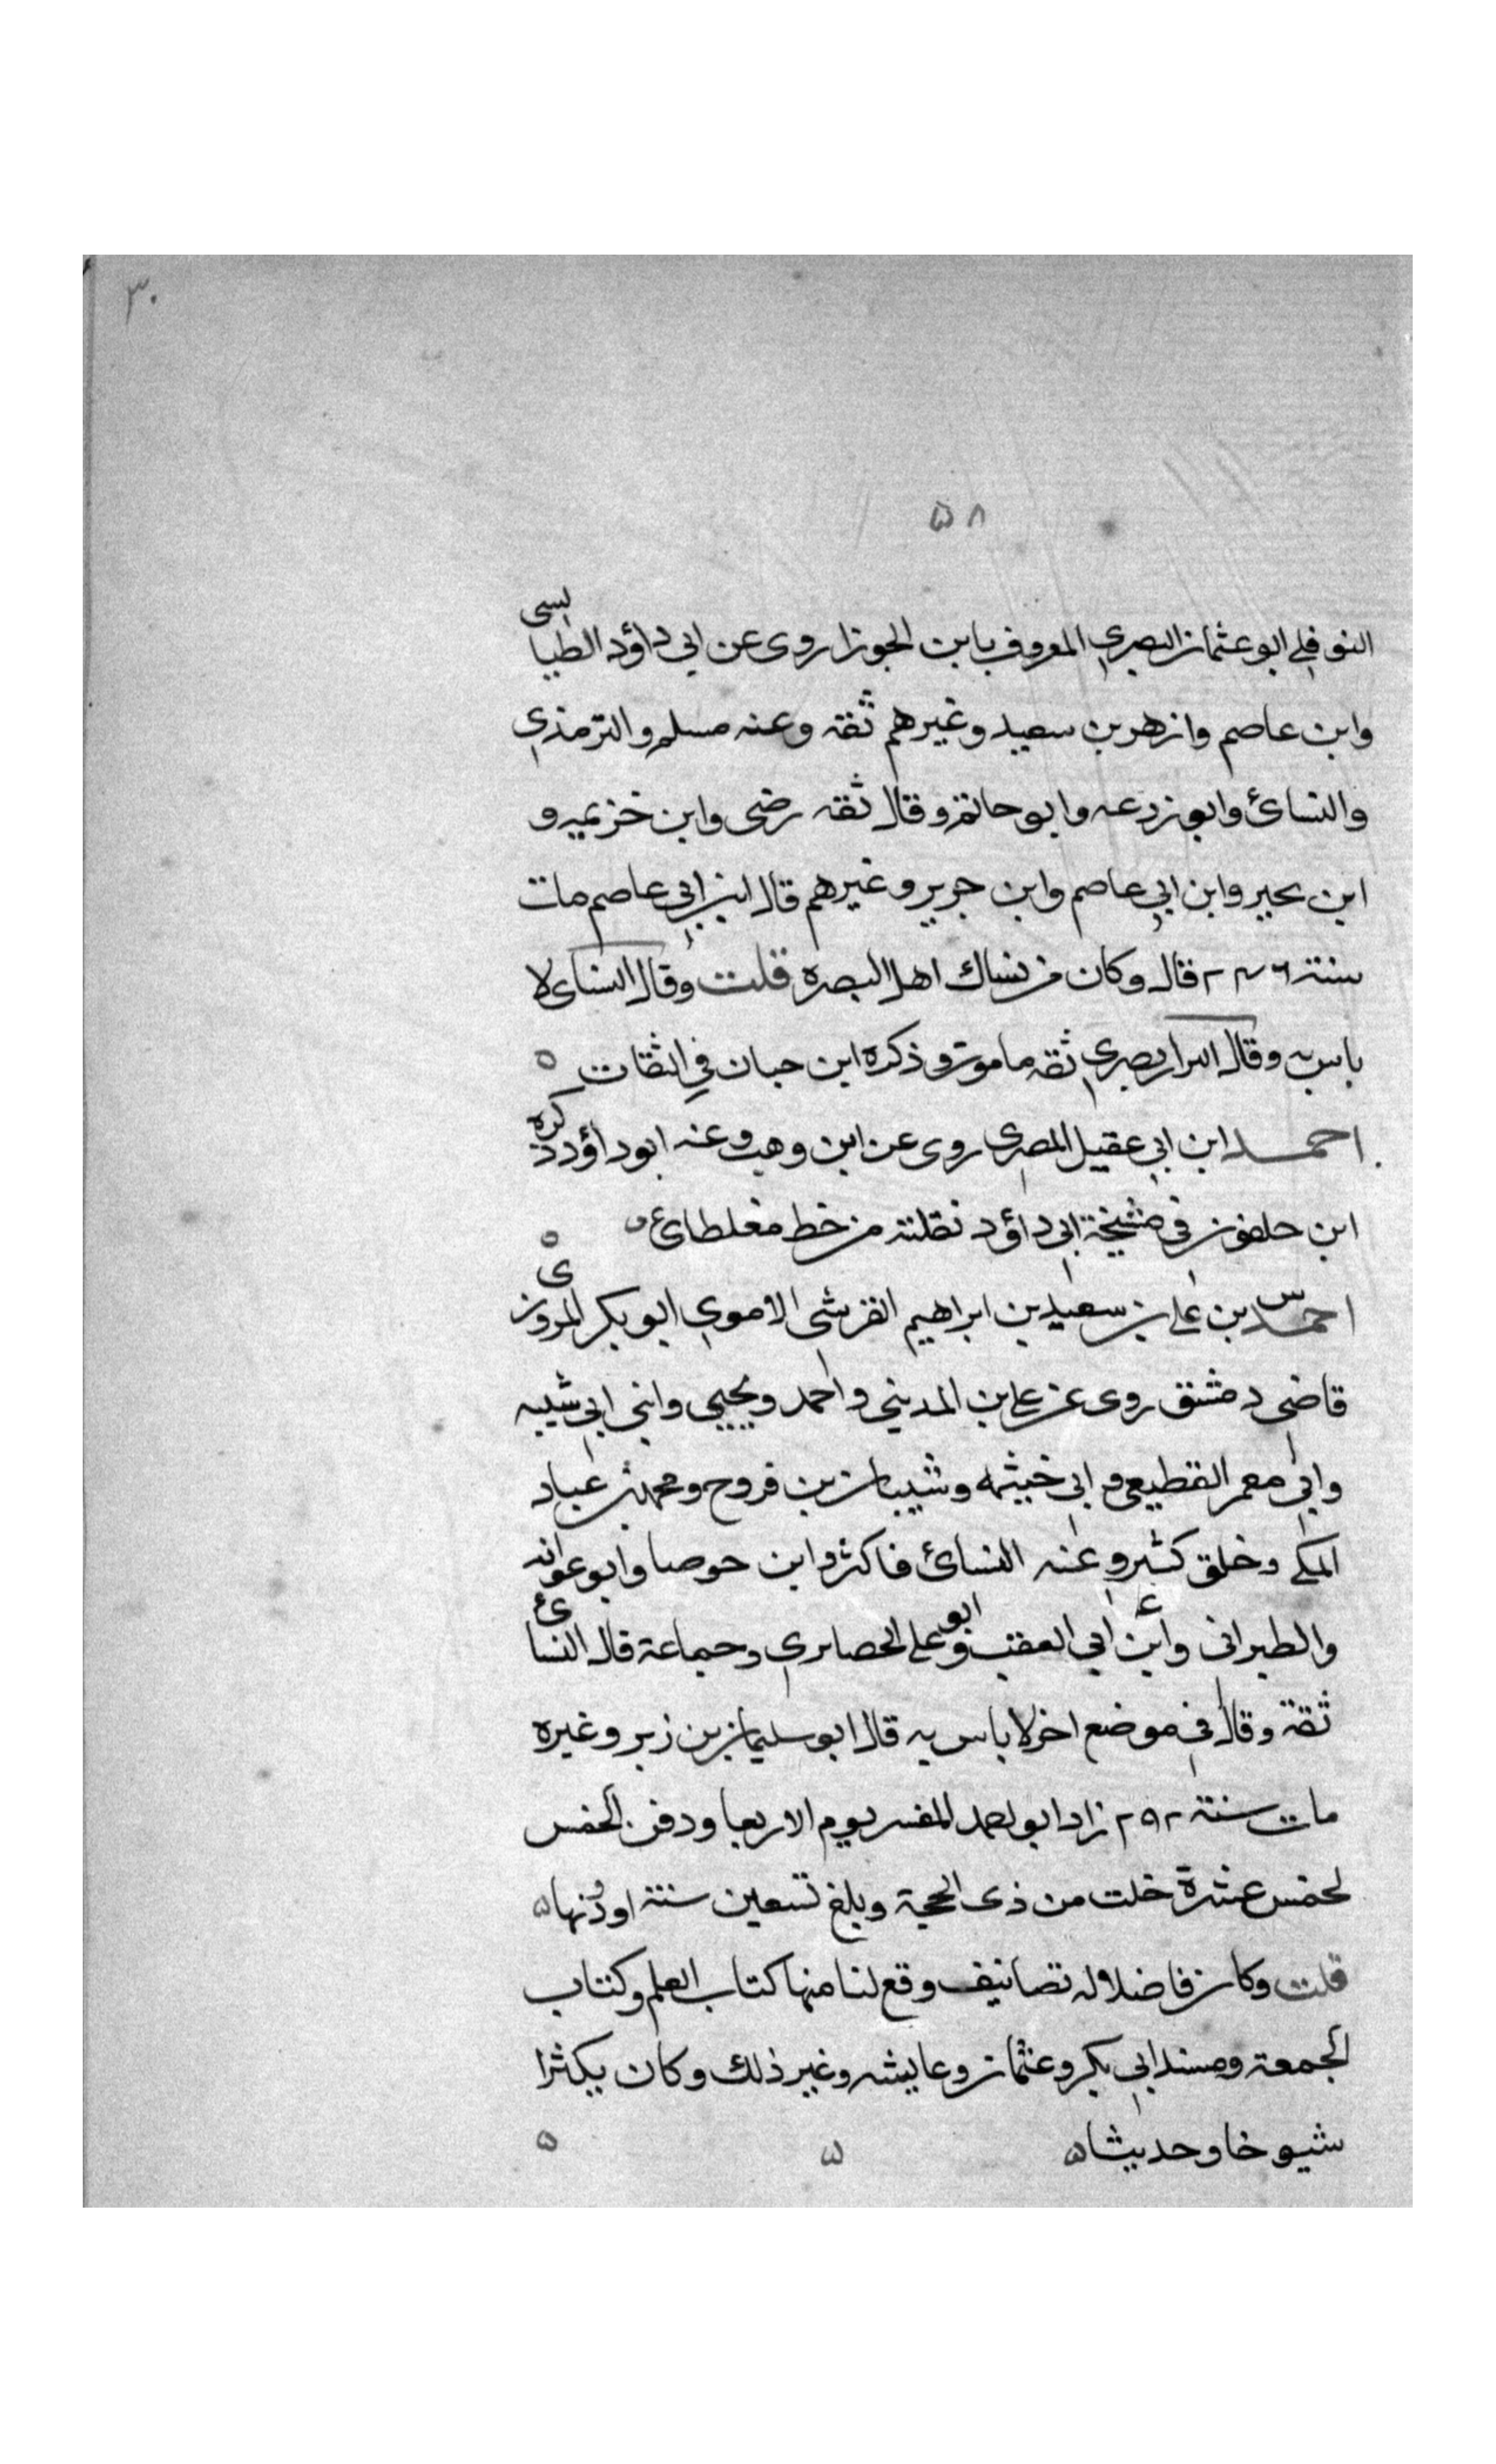 ٣٠
٥٨
النوفلي ابو عثمان البصري المعروف بابن الجوزا روى عن ابي داؤد الطيالسى
وابن عاصم وازهر بن سعيد وغيرهم ثقه وعنه مسلم والترمذي
والنسائ وابو زرعه وابو حاتم وقال ثقه رضى وابن خزيمه و
ابن بحير وابن ابي عاصم وابن جرير وغيرهم قال ابن ابي عاصم مات
سنة ٢٤٦ قال وكان من نساك اهل البصره قلت وقال النسائ لا
باس به وقال البزار بصري ثقه مامون وذكره ابن حبان في الثقات ه
احمد ابن ابي عقيل المصرى روى عن ابن وهب وعنه ابو داؤد ذكره
ابن حلفون فى مشيخة ابى داؤد نقلته من خط مغلطائ ه ه
احمد س بن على بن سعيد بن ابراهيم القرشى الاموي ابو بكر المروزى
قاضى دمشق روى عن على بن المدينى واحمد ويحيى وابنى ابى شيبه
وابى معمر القطيعى وابى خيثمه وشيبان بن فروح ومحمد بن عباد
المكى وخلق كثير وعنه النسائ فاكثر وابن حوصا وابو عوانه
والطبرانى وابن ابي العقب وابو على الحصاىري وجماعة قال النسائ
ثقة وقال فى موضع اخر لا باس به قال ابو سليمان بن زبر وغيره
مات سنة ٢٩٢ زاد ابو احمد المفسر يوم الاربعا ودفن الخمس
لخمس عشرة خلت من ذى الحجة وبلغ تسعين سنة او دونها ه
قلت وكان فاضلا له تصانيف وقع لنا منها كتاب العلم وكتاب
الجمعة ومسند ابي بكر وعثمان وعايشه وغير ذلك وكان يكثرا
شيوخا وحديثا ه ه ه